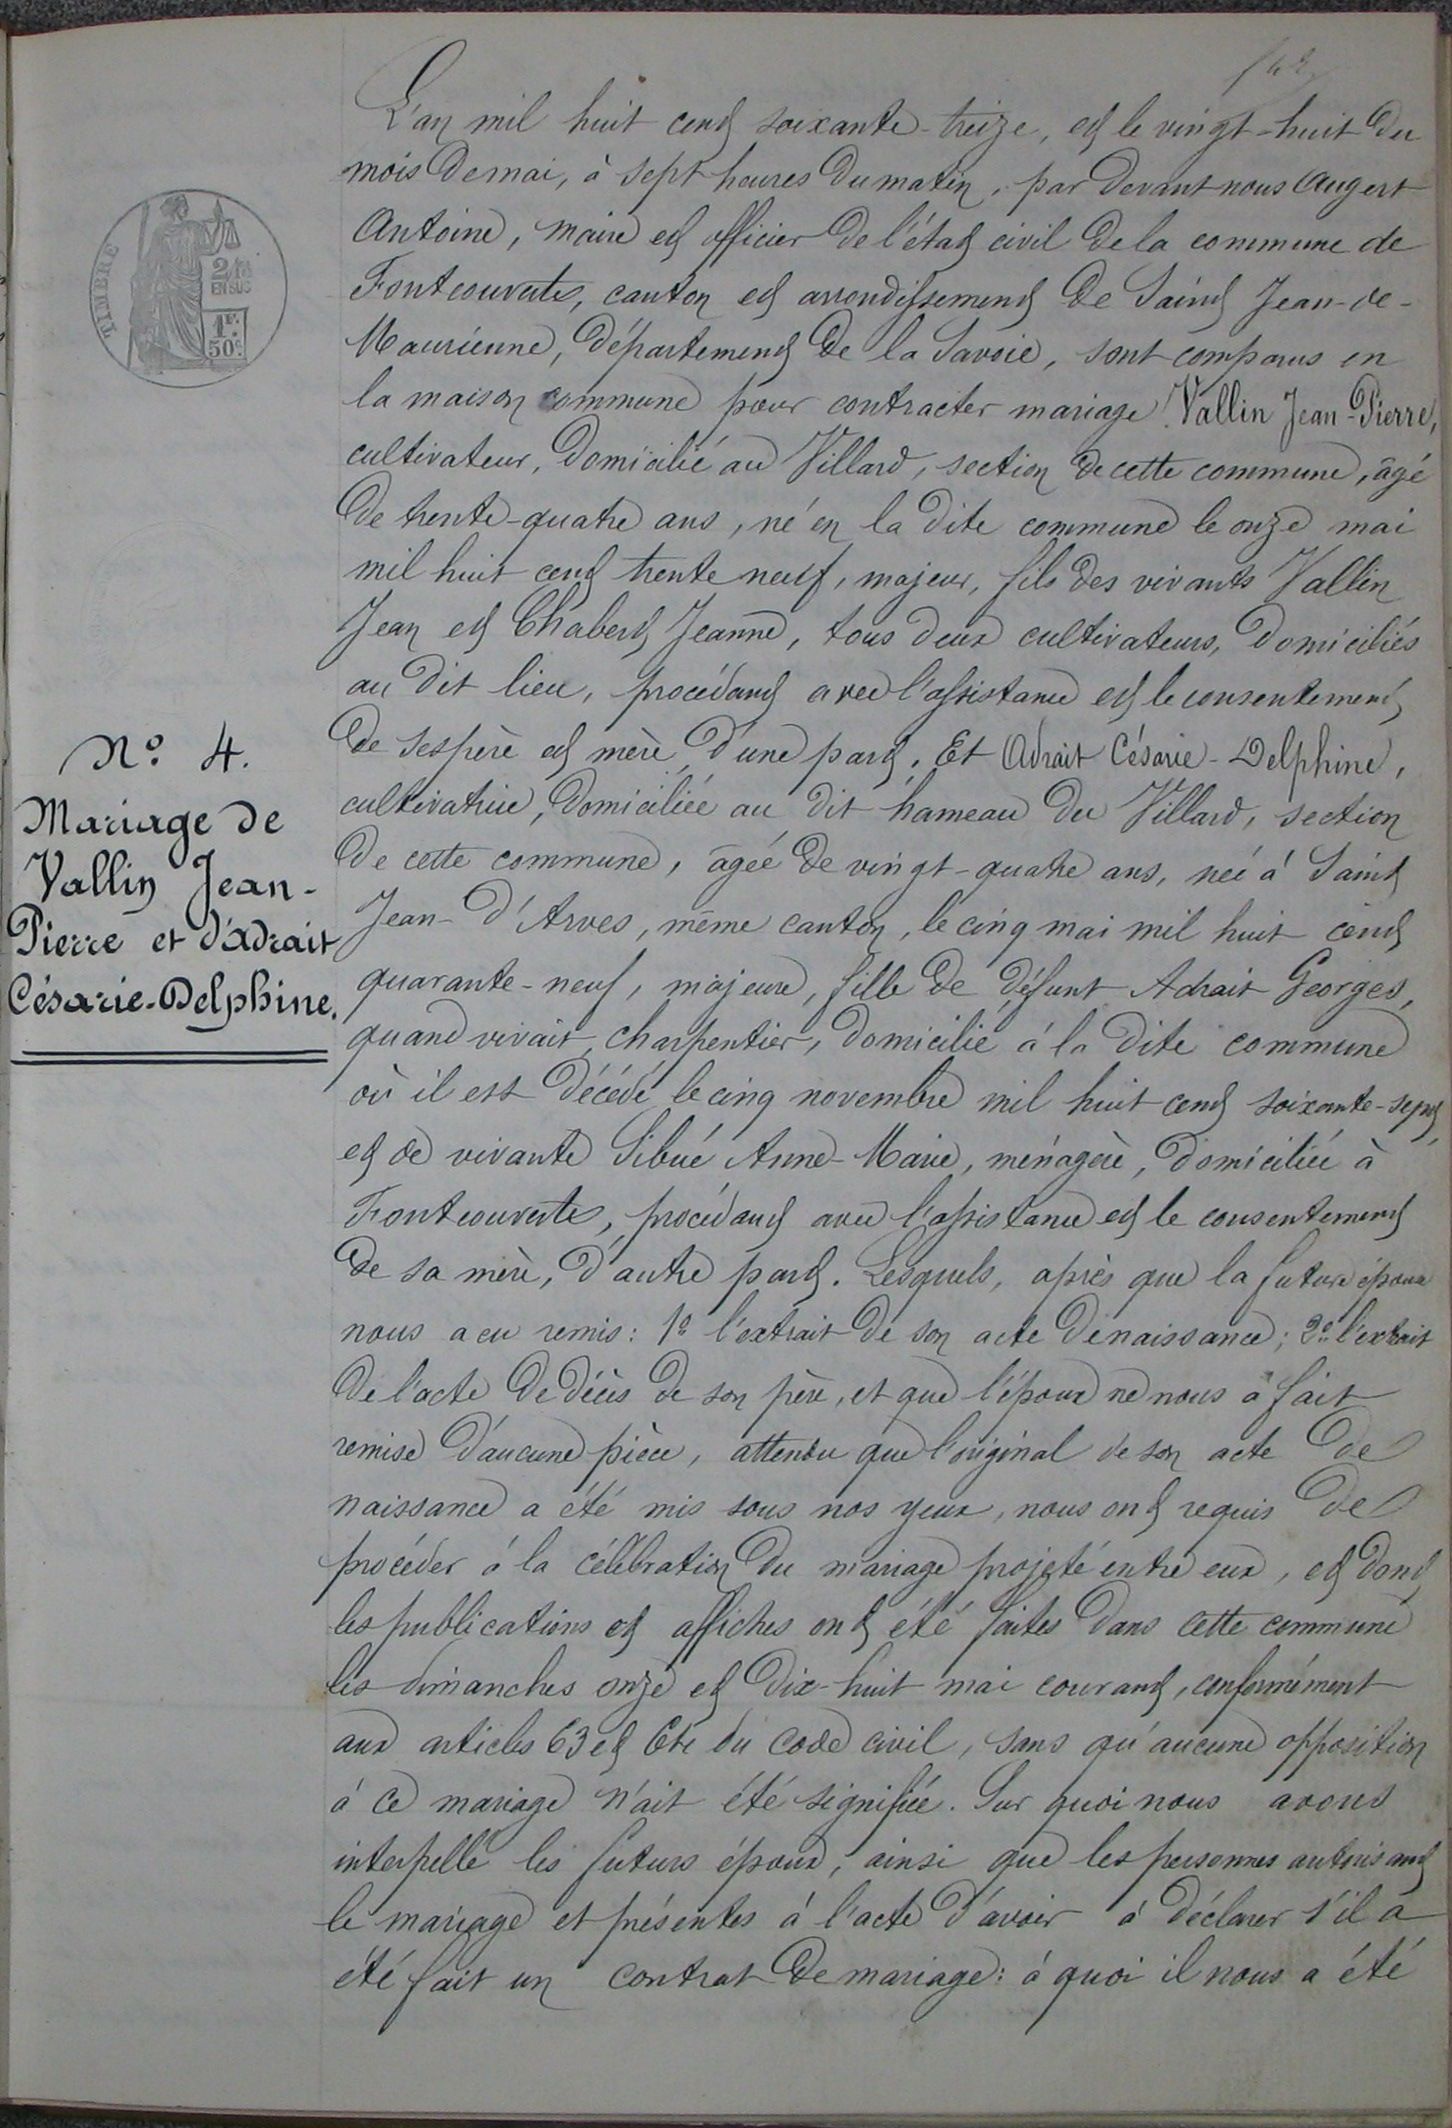 L'an mil huit cent soixante-treize, et le vingt-huit du
mois de mai, à sept heures du matin, par devant nous Augert
Antoine, maire et officier de l'état civil de la commune de
Fontcouverte, canton et arrondissement de Saint Jean-de-
Maurienne, département de la Savoie, sont comparus en
la maison commune pour contracter mariage Vallin Jean-Pierre,
cultivateur, domicilié au Villard, section de cette commune, âgé
de trente-quatre ans, né en la dite commune le onze mai
mil huit cent trente neuf, majeur, fils des vivants Vallin
Jean et Chabert Jeanne, tous deux cultivateurs, domiciliés
au dit lieu, procédant avec l'assistance et le consentement
de ses père et mère d'une part. Et Adrait Césarie-Delphine,
cultivatrice, domiciliée au dit hameau du Villard, section
de cette commune, âgée de vingt-quatre ans, née à Saint
Jean-d'Arves, même canton, le cinq mai mil huit cent
quarante-neuf, majeure, fille de défunt Adrait Georges,
quand vivait, charpentier, domicilié à la dite commune
où il est décédé le cinq novembre mil huit cent soixante-sept,
et de vivante Sibué Anne-Marie, ménagère, domiciliée à
Fontcouverte, procédant avec l'assistance et le consentement
de sa mère, d'autre part. Lesquels, après que la future épouse
nous a eu remis: 1º l'extrait de son acte de naissance; 2º l'extrait
de l'acte de décès de son père, et que l'époux ne nous a fait
remise d'aucune pièce, attendu que l'original de son acte de
naissance a été mis sous nos yeux, nous ont requis de
procéder à la célébration du mariage projeté entre eux, et dont
les publications et affiches ont été faites dans cette commune
les dimanches onze et dix-huit mai courant, conformément
aux articles 63 et 64 du code civil, sans qu'aucune opposition
à ce mariage n'ait été signifiée. Sur quoi nous avons
interpellé les futurs époux, ainsi que les personnes autorisant
le mariage et présentes à l'acte d'avoir à déclarer s'il a
été fait un contrat de mariage: à quoi il nous a été
Nº 4.
Mariage de
Vallin Jean-
Pierre et d'Adrait
Césarie-Delphine.
TIMBRE
2/10
EN SUS
1F.
50c.